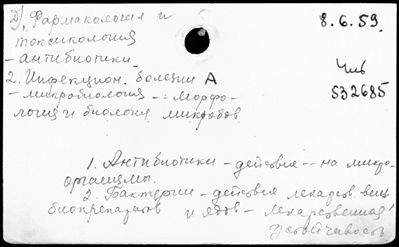 Д), Фармакология и
8.6.59.
токсикология
- антибиотики.
Чив
2. Инфекцион. болезни А
532685
- микробиология -: Морфо-
логия и биология микробов
1. Антибиотики - действие -- на микро-
организмы.
2. Бактерии - действие лекарств. вещ.
биопрепаратов и ядов - лекарственная
устойчивость